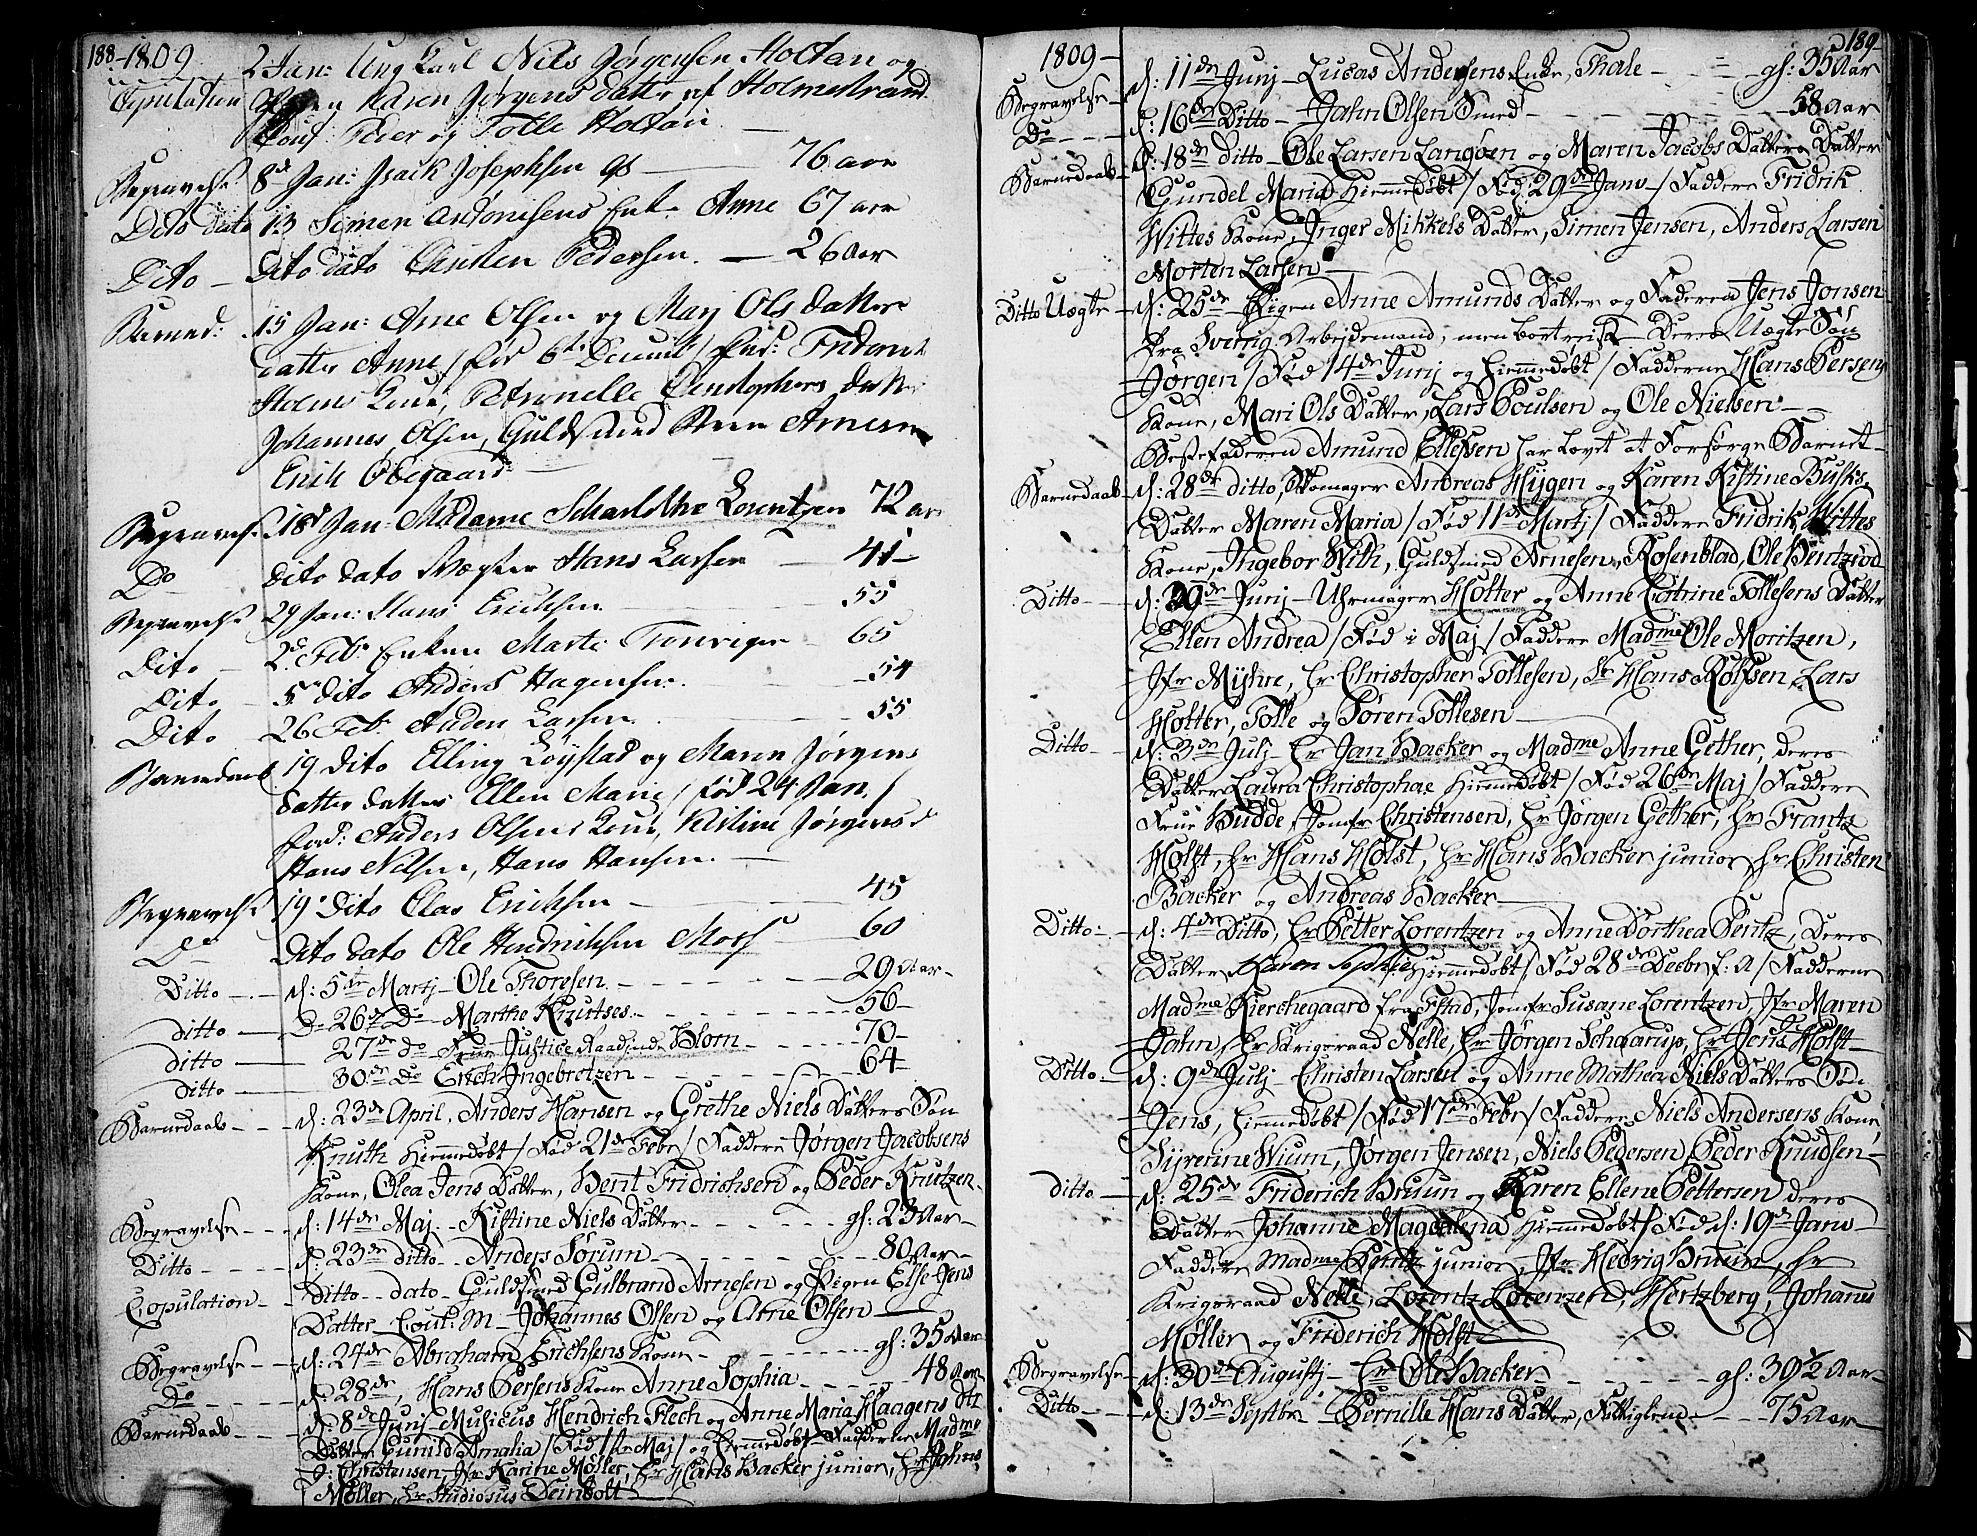 188 - 1809
Copulation 2 Jan: Ung Karl Nils Jørgensen Holtan og
Pigen Karen Jørgens datter af Holmestrand
Cout: Peder og Tolle Holtan
Begravelse 8d Jan: Isack Josephsen gl 76 aar
Dito dato 13 Simen Antonisens Enke Anne 67 aar
Dito - dito dato Carsten Pedersen. - 26 Aar
Barned: 15 Jan: Arne Olsen og Marj Ols datters
datter Anne / fød 6te / fad: Frideric
Holms Kone, Petronelle Christophers datter
Johannes Olsen, Guldsmed Arnesen
Erich Obegaard
Begravelse 18d Jan: Madame Scharlothe Lorentzen 72 aar
Do dito dato Vægter Hans Larsen - 41 -
Begravelse 29 Jan: Hans Erichsen 55
Dito - 2d Feb: Enken Marte 65
Dito - 5te dito Anders Hagensen. 54
Dito 26 Feb. Anders Larsen 55
Barnedaab 19 dito Elling Løystad og Maren Jørgens
datters datter Ellen Marie / fød 24 Jan. /
fad: Anders Olsens Kone, Kistine Jørgens d
Hans Nilsen, Hans Hansen. -
Begravelse 19 dito Claus Erichsen - 45
Do dito dato Ole Hendrichsen Moss 60
Ditto - d: 5te Martj - Ole Thoresen. - 29 Aar -
ditto - D= 26de Do - Marthe Knutses. - 56 -
ditto - 27de do - Frue Justice Raadinde Blom - 70 -
ditto - 30de Do Erich Ingebretzen - 64 -
Barnedaab - d: 23de April, Anders Hansen og Grethe Niels Datters Søn
Knuth Hiemmedøbt / Fød 21de Febr / Faddere Jørgen Jacobsens
Kone, Olea Jens Datter, Berit Fridrichsen og Peder Knutzen.
Begravelse - d: 14de Maj - Kistine Niels Datter - gl: 23 Aar -
Ditto - d: 23de ditto - Anders Sørum - 80 Aar -
Copulation - Ditto - dato - Guldsmed Gulbrand Arnesen og Pigen Else Jens
Datter - Cout: M - Johannes Olsen og Arne Olsen -
Begravelse - d: 24de Abraham Erichsens Kone - gl: 35 Aar
Do - d: 28de, Hans Persens Kone Anne Sophia - 48 Aar
Barnedaab - d: 8de Junj Musicus Hendrich Flech og Anne Maria Haagens dtr
Datter Gunild Amalia / Fød 1te Maj / og Hiemmedøbt - Fadderne Madme
J: Christensen, Jfr Karine Møller, Hr Hans Backer junior, Hr Johns
Møller, Hr Studiosus Deinbolt
1809 - 189
Begravelse - d: 11de Junj - Lucas Andersens Enke, Thale - gl: 35 Aar
Do - d: 16de Ditto - Jahn Olsen Smed - 58 Aar
Barnedaab - d: 18de ditto - Ole Larsen Langøen og Maren Jacobs Datters Datter
Gundel Maria Hiemmedøbt / Fød 29de Janv - / Faddere Fridrik
Wittes Kone, Inger Mikkels Datter, Simen Jensen, Anders Larsen
Morten Larsen -
Ditto Uægte - d: 25de Pigen Anne Amunds Datter og Faderen Jens Jonsen
Fra Sverrig Arbejdsmand, men bortreist - Deres Uægte Søn
Jørgen / Fød 14de Junj og Hiemmedøbt / Fadderne Hans Persens
Kone, Mari Ols Datter, Lars Poulsen og Ole Nielsen -
Bestefaderen Amund Ellefsen har lovet at Forsørge Barnet -
Barnedaab - d: 28de ditto, Skomager Andreas Hygen og Karen Kistine Busks
Datter Maren Maria / Fød 11d Martj / Faddere Fridrik Wittes
Kone, Ingebor With, Guldsmed Arnesen, Rosenblad, Ole Bentzrød
Ditto - d: 29de Junj - Uhrmager Holter og Anne Catrine Tollesens Datter
Ellen Andrea / Fød i Maj / Faddere Madme Ole Moritzen,
Jfr Myhre, Hr Christopher Tollesen, Sr Hans Rolfsen, Lars
Holter, Tolle og Søren Tollesen -
Ditto - d: 3de Julj - Hr Jan Backer og Madme Anne Gether, deres
Datter Laura Christophae Hiemmedøbt / Fød 26de Maj / Faddere
Frue Budde, Jomfr Christensen, Hr Jørgen Gether, Hr Frantz
Holst, Hr Hans Holst, Hr Hans Backer junior, Hr Christen
Backer og Andreas Backer -
Ditto: d: 4de Ditto, Hr Petter Lorentzen og Anne Dorthea Pentz, Deres
Datter Karen Sophie Hiemmedøbt / Fød 28de Decbr f: A / Fadderne
Madme Kierchegaard fra Fstad, Jomfr Susane Lorentzen, Jfr Maren
Jahn, Hr Krigsraad Nelle, Hr Jørgen Schaarup, Hr Jens Holst -
Ditto - d: 9de Julj - Christen Larsen og Anne Mathea Niels Datters Søn
Jens, Hiemmedøbt / Fød 17de Febr / Faddere Niels Andersens Kone,
Syverine Wium, Jørgen Jensen, Niels Pedersen, Peder Knudsen -
ditto - d: 25de Friderich Bruun og Karen Ellene Pettersen deres
Datter Johanne Magdalena Hiemmedøbt / Fød d: 19de Janv -
Faddere Madme Pentz junior, Jfr Hedvig Bruun, Hr
Krigsraad Nelle, Lorentz Lorenzen, Hertzberg, Johanes
Møller og Friderich Holst -
Begravelse - d: 30d Augustj - Hr Ole Backer - gl: 39 1/2 Aar -
Ditto - d: 13de Septbr - Pernille Hans Datter, Fattiglem - 75 Aar -